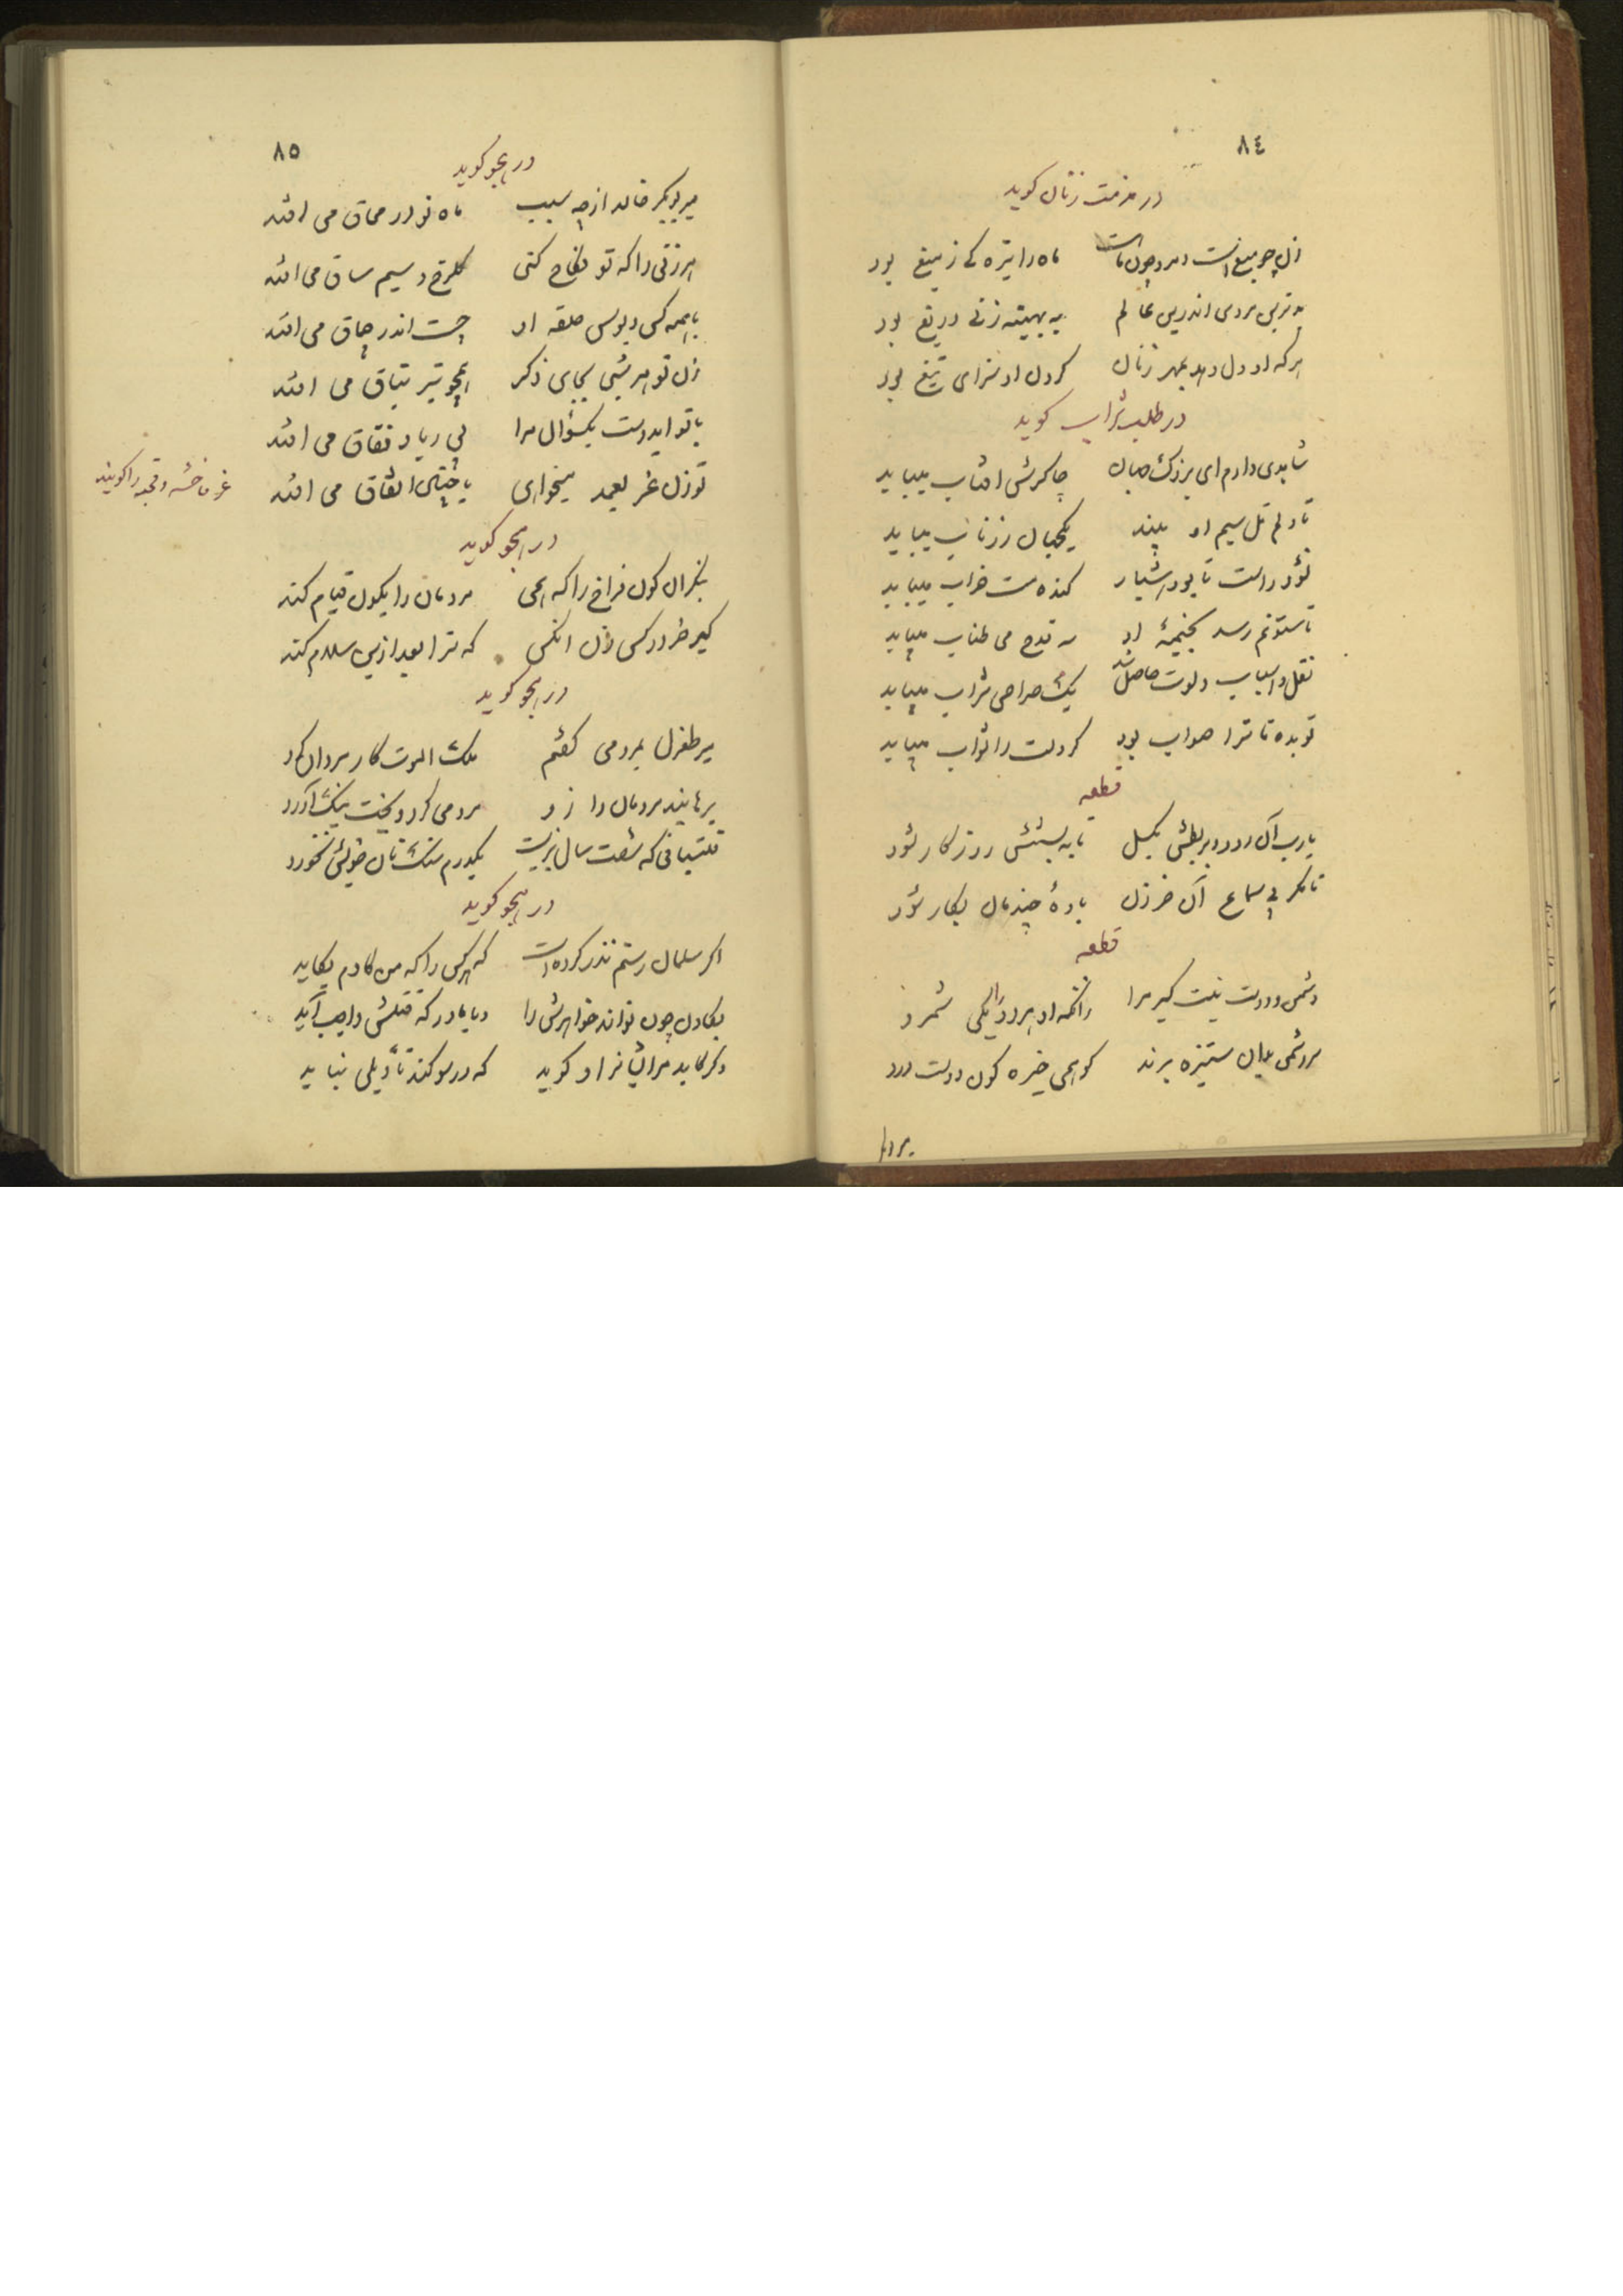 ٨٤
در مذمت زنان گوید
زن چو میغ است و مرد چون ماه است ماه را تیره گی ز میغ بود
بدترین مردی اندرین عالم به بهینه زنی دریغ بود
هر که او دل دهد بمهر زنان گردن او سزای تیغ بود
در طلب شراب گوید
شاهدی دارم ای بزرگ چنان چاکرش افتاب میباید
تا دلم تل سیم او بیند یکجهان زر ناب میباید
نشود راست تا بود هشیار کنده مست خراب میباید
تا ستونم رسد بخیمهٔ او سه قدح می طناب میباید
نقل و اسباب ولوت حاصل شد یک صراحی شراب میباید
تو بده تا ترا صواب بود گر دلت را ثواب میباید
قطعه
یارب آن رود بربطش بگسل تا به پستش روزگار شود
تا مگر بی سماع آن خر زن بادهٔ چند مان بکار شود
قطعه
دشمن و دوست نیت کیر مرا زانکه او هر دو را یکی شمرد
مر دشمن بدان ستیزه برند کو همی خیره کون دوست درد
مردمان
٨٥
در هجو گوید
میر بوبکر خالد از چه سبب ماه تو در محاق می افتد
هر زنی را که تو نکاح کنی گلرخ و سیم ساق می افتد
با همه کس وبوس حلقه او چست اندر چاق می افتد
زن تو هر شبی بجای ذکر همچو تیر تباق می افتد
با تو ایدوست یکسؤال مرا بی ریا و نفاق می افتد
تو زن غر بعمد میخواهی یا چنین اتفاق می افتد
غر فاخشه و قحبه را گویند
در هجو گوید
بنگر ان کون فراخ را که همی مردمان را بکون قیام کند
کیر خر در کس زن انکس که ترا بعد ازین سلام کند
در هجو گوید
میر طغرل بمرد می گفتم ملک الموت کار مردان کرد
برهانید مردمان را زو مردمی کرد و بخت نیک آورد
قلتبانی که شصت سال بزیست یکدرم سنگ نان خویش نخورد
در هجو گوید
اگر سلمان رستم نذر کرده است که هر کس را که من گادم بگاید
بگادن چون تواند خواهرش را و یا مادر که قتلش واجب آید
وگر گاید مر ایشانرا و گوید که در سوگند تأویلی نباید